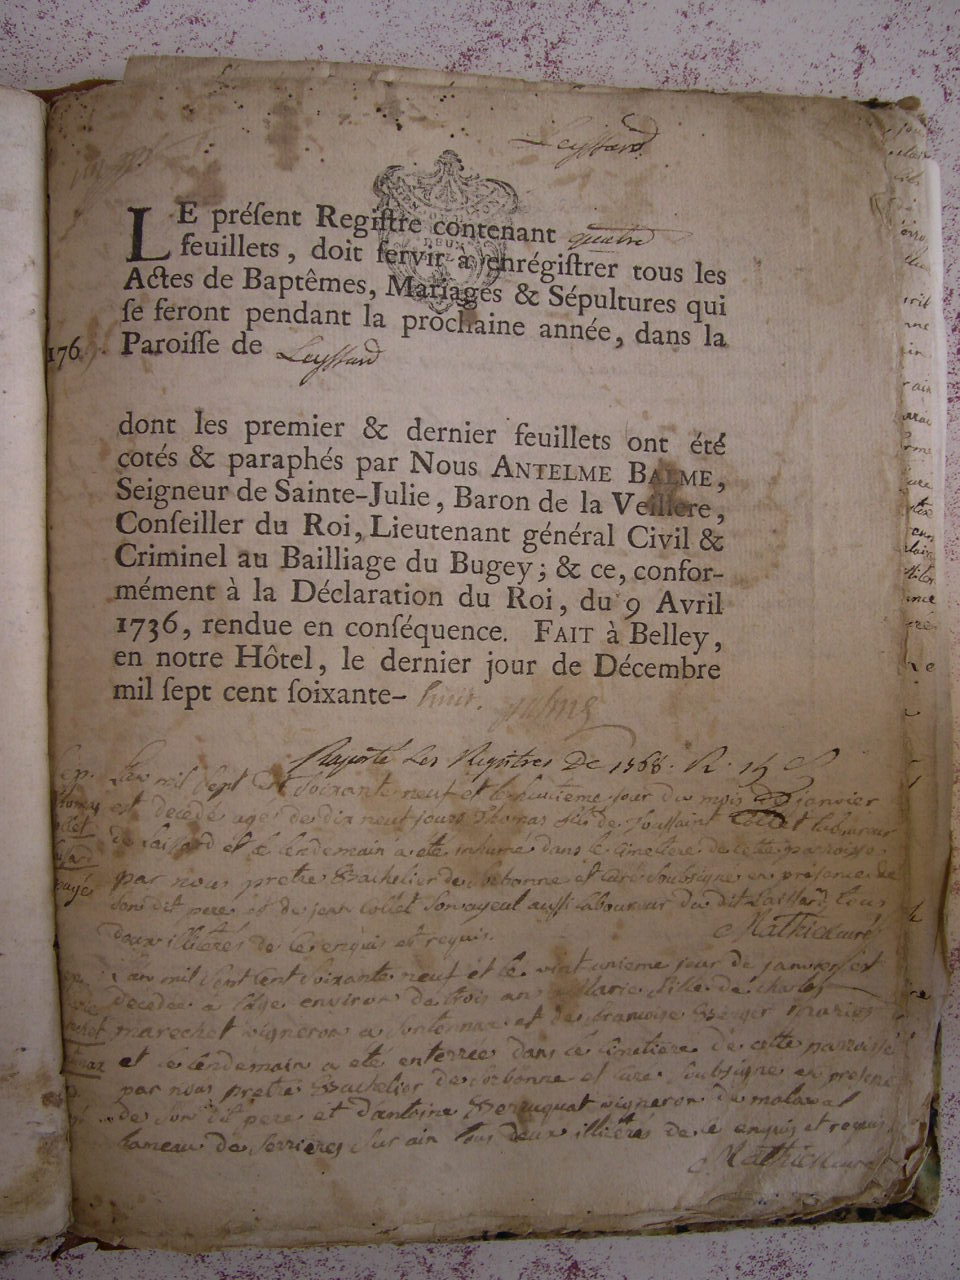 Leyssard
LE préſent Regiſtre contenant quatre
feuillets, doit ſervir à enrégiſtrer tous les
Actes de Baptêmes, Mariages & Sépultures qui
ſe feront pendant la prochaine année, dans la
176 Paroiſſe de Leyssard
dont les premier & dernier feuillets ont été
cotés & paraphés par Nous ANTELME BALME,
Seigneur de Sainte-Julie, Baron de la Veillere,
Conſeiller du Roi, Lieutenant général Civil &
Criminel au Bailliage du Bugey; & ce, confor-
mément à la Déclaration du Roi, du 9 Avril
1736, rendue en conſéquence. FAIT à Belley,
en notre Hôtel, le dernier jour de Décembre
mil ſept cent ſoixante- huit. Balme
Raporté Les Registres De 1768.
L'an mil sept cent soixante neuf et le huitieme jour du mois de janvier
est decedé agé de dix neuf jours Thomas fils de Toussaint Collet laboureur
de Laissard et le lendemain a eté inhumé dans le cimetiere de cette parroisse
par nous pretre Bachelier de sorbonne et curé soubsigne en présence de
son dit pere et de jean Collet son ayeul aussi laboureur du dit Laissard tous
deux illitérés de ce enquis et requis. Mathieu curé
L'an mil sept cent soixante neuf et le vint unieme jour de janvier est
decedée à l'age environ de trois ans Marie fille de Charles
marechet vigneron a et de francoise Berger mariés
et le lendemain a eté enterrée dans le cimetière de cette parroisse
par nous pretre Bachelier de sorbonne et curé soubsigne en presence
de son dit pere et d'antoine vigneron de
hameau de serrieres sur ain tous deux illitérés de ce enquis et requis.
Mathieu curé